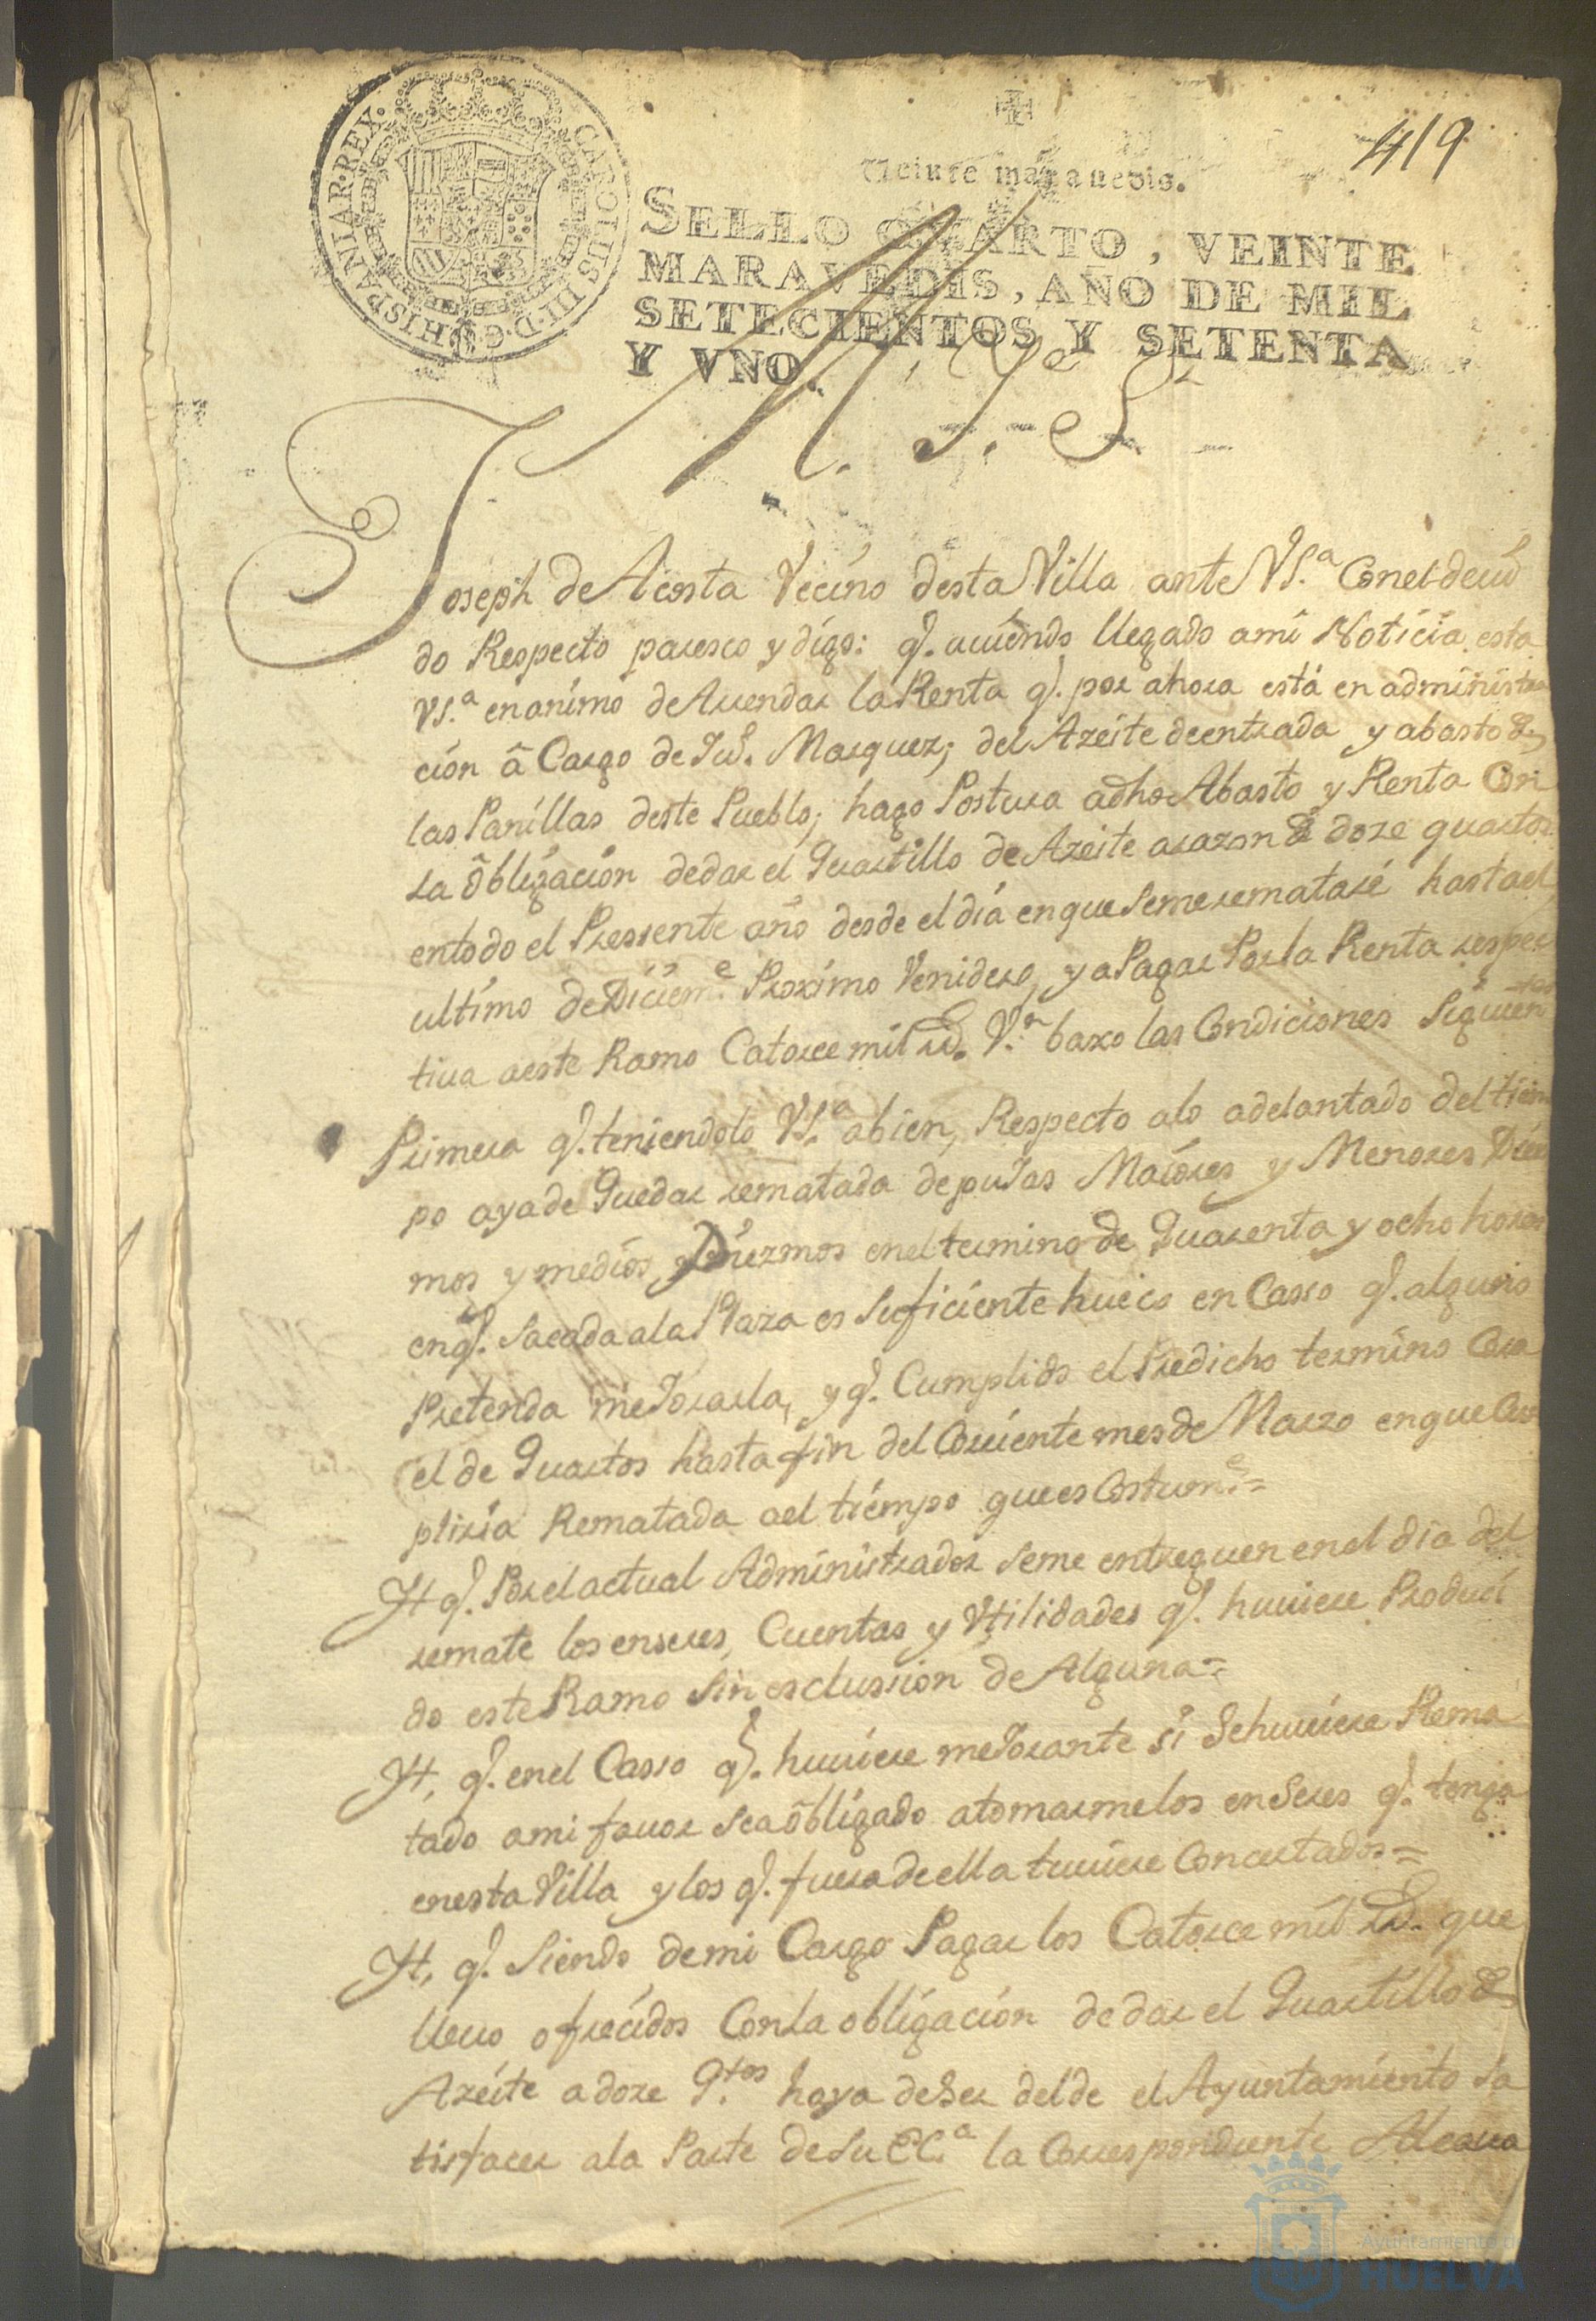 419
Veinte maravedis.
SELLO QVARTO, VEINTE
MARAVEDIS, AÑO DE MIL
SETECIENTOS Y SETENTA
Y VNO.
CAROLUS III D.G. HISPANIAR. REX.
M. J. S.
Joseph de Acosta Vecino desta Villa ante VS.ª Conel devi
do Respecto paresco y digo: q.e aviendo llegado ami Noticia esta
VS.ª en animo de Arrendar la Renta q.e por ahora está en administra
ción â Cargo de Ju.º Marquez; del Azeite de entrada y abasto de
las Panillas deste Pueblo; hago Postura adho Abasto y Renta Con
la ôbligación de dar el Quartillo de Azeite a razon de doze quartos
en todo el Pressente año desde el dia en que seme rematare hasta el
ultimo de Diciem.e Proximo Venidero, y a Pagar Por la Renta respec
tiva a este Ramo Catorce mil rs. V.n baxo las Condiciones Siguien
tes
Primera q.e teniendolo VS.ª abien, Respecto alo adelantado del tiem
po aya de Quedar rematada de puJas Maiores y Menores Diez
mos y medios Diezmos en el termino de Quarenta y ocho horas
en q.e sacada ala Plaza es suficiente hueco en Casso q.e alguno
Pretenda meJorarla, y q.e Cumplido el Predicho termino Corra
el de Quartos hasta fin del Corriente mes de Marzo en que Cum
pliria Rematada a el tiempo que es Costum.e =
Yt q.e Por el actual Administrador seme entreguen en el dia del
remate los enseres, Cuentas y Vtilidades q.e huviere Produci
do este Ramo sin esclussion de Alguna =
Yt, q.e en el Casso q.e huviere meJorante si Sehuviere Rema
tado ami favor sea ôbligado a tomarme los enSeres q.e tenga
en esta Villa y los q.e fuera de ella tuviere Concertados =
Yt, q.e Siendo de mi Cargo Pagar los Catorce mil rs. que
llevo ofrecidos Con la obligación de dar el Quartillo de
Azeite a doze q.tos haya de Ser del de el Ayuntamiento sa
tisfacer ala Parte de Su EC.ª la Correspondiente Alcavala
Ayuntamiento de
HUELVA